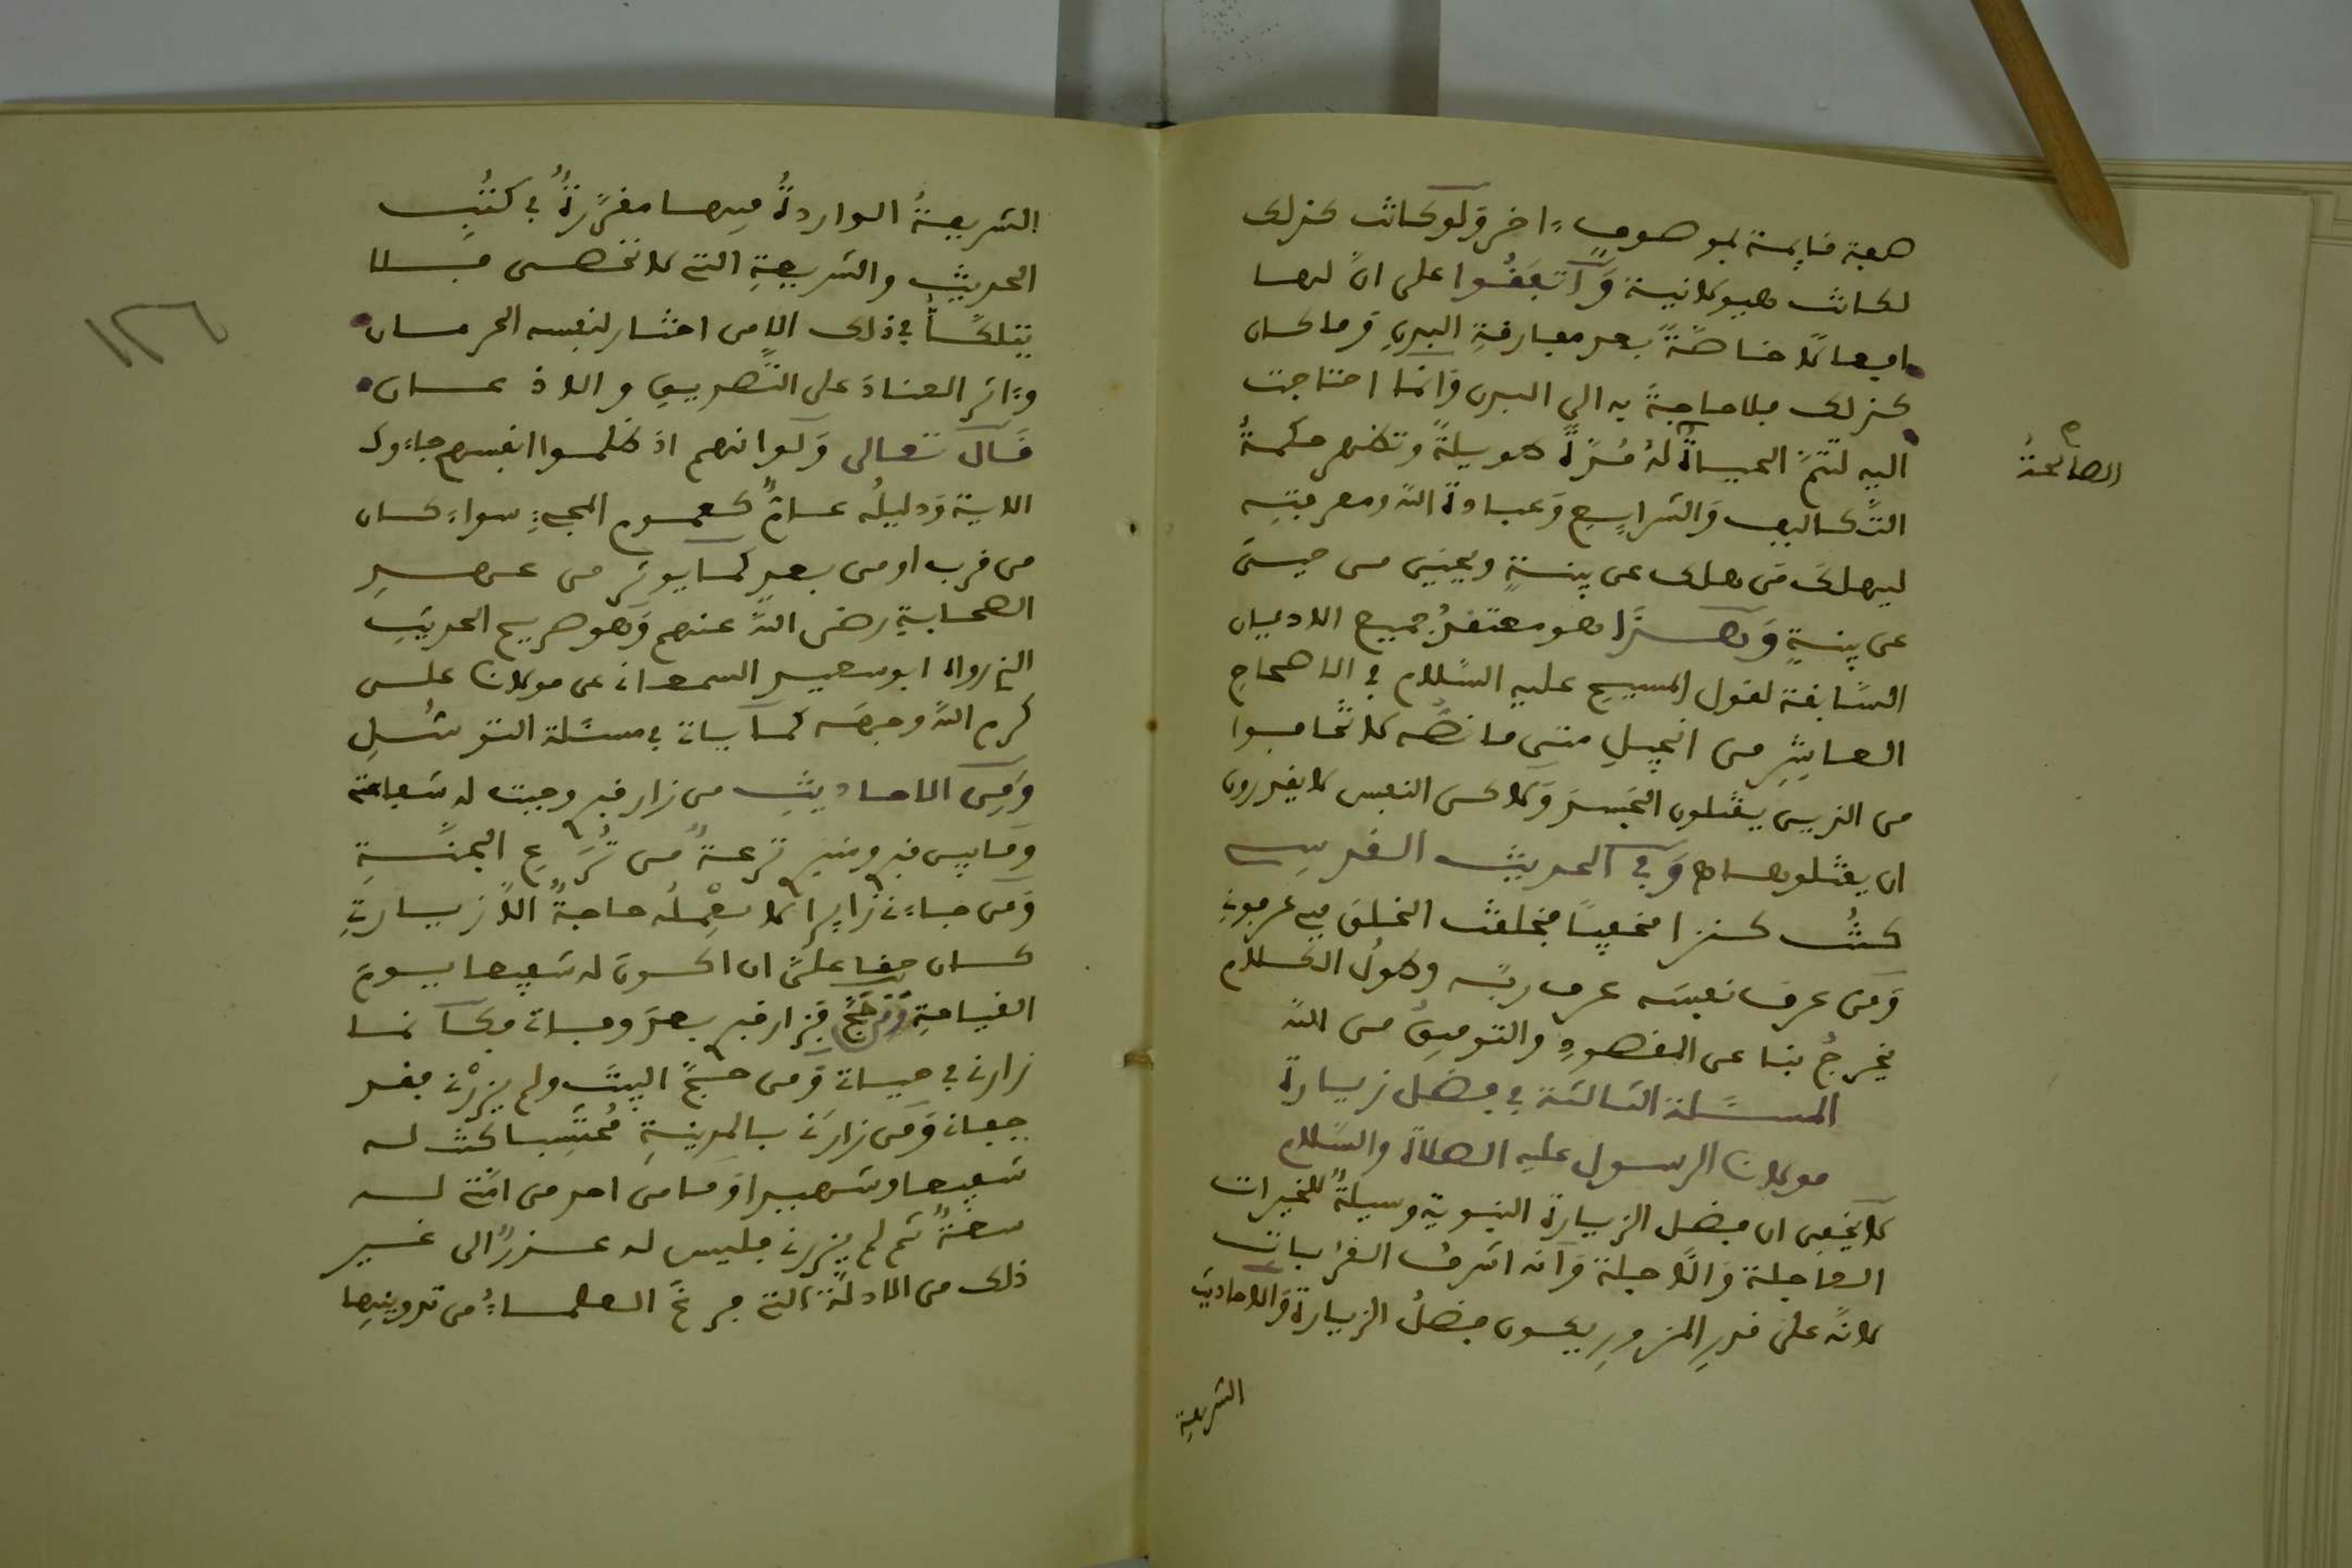 صفة قايمة بموصوفٍ ءاخر وَلو كانت كذلك
لكانت هيولانية وَاتفَقُوا على انّ لها
افعالًا خاصّةً بعد مفارقةِ البدنِ وَما كان
كذلك فلا حاجةَ به الى البدن وَانما احتاجت
اليه لتتمّ الحيـاةُ لهُ مُدّةً طويلةً وتظهر حكمةُ
التّكاليف وَالشرايِعِ وَعبادة اللهِ ومعرفتِه
ليهلكَ مَن هلك عن بينـةٍ ويحيَى من حيىَ
عن بينةٍ وَهـذَا هو معتقدُ جميع الاديان
السّابقة لقول المسيح عليه السّلام في الاصحاحِ
العاشِرِ من انجيلِ متّى ما نصّه لا تخافوا
من الذين يقتلون الجَسدَ وَلاكن النفس لا يقدرون
ان يقتلوهـا وَفي الحديث القدسي
كنتُ كنزا مخفيـًا فخلقت الخلقَ فبي عرفونِ
وَمَن عرفَ نفسَه عرف ربّه وطولُ الكـلام
يخرجُ بنا عن المقصودِ والتوفيقُ من اللهِ
المسـئلة الثالثة في فضل زيـارة
مولانا الرسول عليه الصلاة والسّلام
لا يخفى ان فضل الزيـارة النبوية وسيلةٌ للخيرات
العاجلة وَالآجلة وَانه اشرفُ القرُبات
لانّه على قدرِ المزورِ يكـون فضلُ الزيـارة وَالاحاديث
الشريفة
الصالحةُ
الشريفـةُ الواردةُ فيهـا مقرّرةٌ في كتبِ
الحديثِ والشريعةِ التي لا تحصـى فـلا
يتلكّـأُ في ذلك الا من اختار لنفسه الحرمـان
وءاثر العنادَ على التّصديقِ والاذعـان
قـال تعالى وَلوانهم اذ ظلمـوا انفسهم جاءوك
الايـةَ وَدليلُه عـامٌّ كعمـوم المجيءِ سواءٌ كان
من قرب او من بعدٍ كما يوثر من عـهـدِ
الصحـابةِ رضى اللهُ عنهم وَهو صريح الحديثِ
الذي رواه ابو سعيـد السمعـاني عن مولانا علـى
كرم اللهُ وجهَـه كمـا يـاتي في مسـئلة التوسُّلِ
وَمِنَ الاحـاديثِ من زار قبري وجبت له شفاعتي
وَمـا بين قبري ومنبري ترعـةٌ مـن تُرَعِ الجنّـةِ
وَمَن جـاءني زايرا لا تُعْمِلُه حاجـةٌ الاّ زيـارتي
كـان حقا علىّ ان اكـونَ له شفيعا يـومَ
القيـامةِ وَمن حَجّ فزار قبري بعدَ وفاتي فكـأنمـا
زارني في حيـاتي وَمن حـجّ البيتَ ولم يزرْني فقد
جفاني وَمَن زارَني بالمدينـةِ مُحتسِبا كنت لـه
شفيعا وشهيدا وَمـا من احد من امّتي لـه
سعـةٌ ثم لم يزرني فليس له عـذرٌ الى غـير
ذلك من الادلّة التي فرغَ العلمـاءُ من تدوينِها
١٢٦